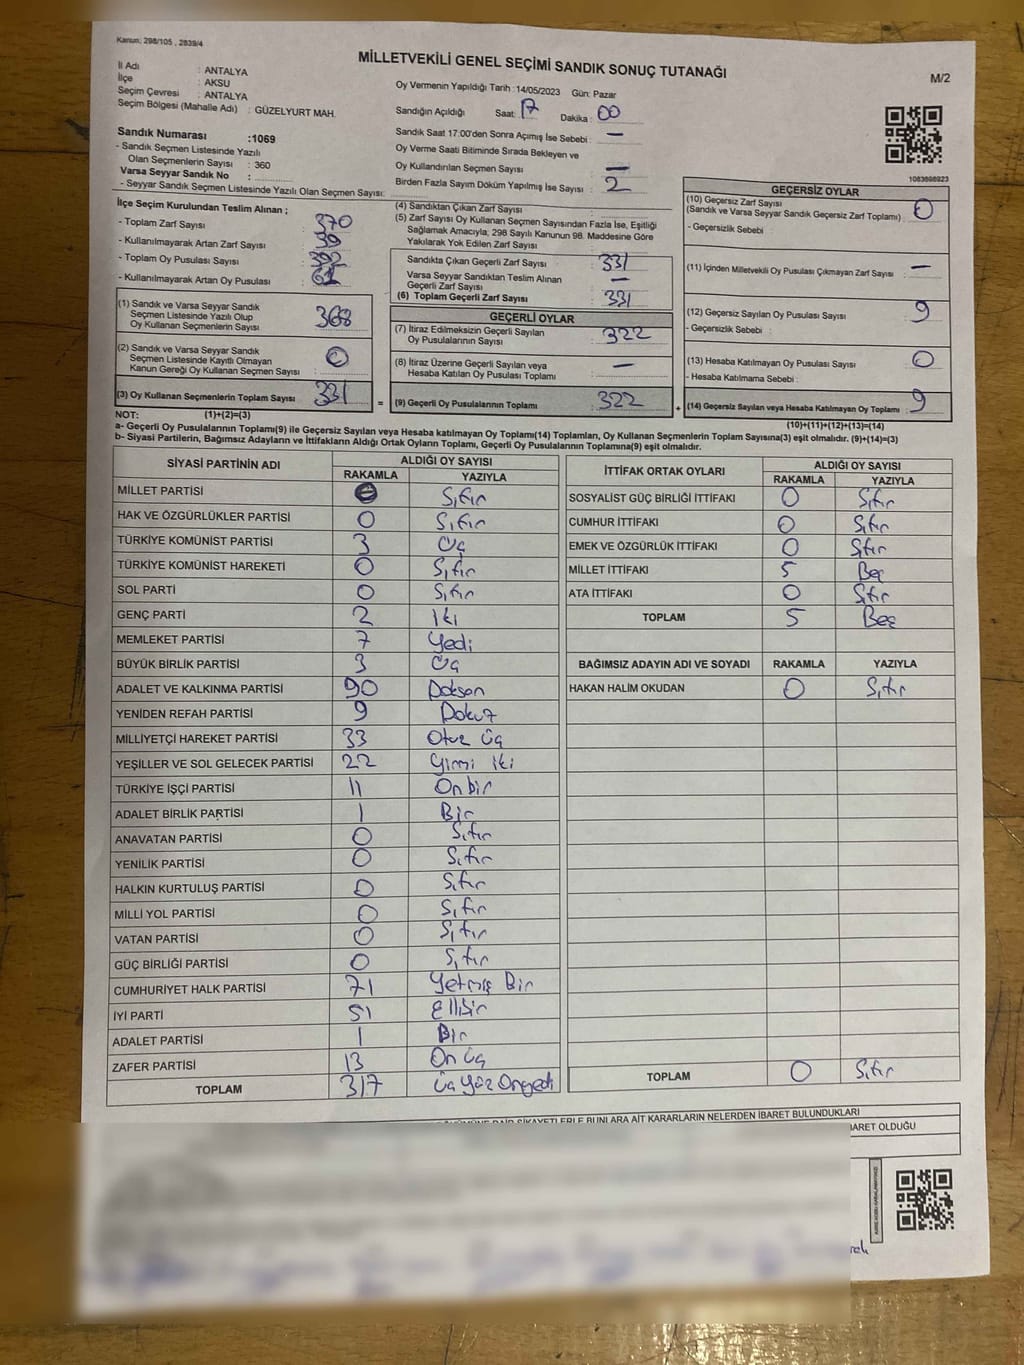 Kanun: 298/105 , 2839/4
MİLLETVEKİLİ GENEL SEÇİMİ SANDIK SONUÇ TUTANAĞI
M/2
İl Adı : ANTALYA
İlçe : AKSU
Seçim Çevresi : ANTALYA
Seçim Bölgesi (Mahalle Adı) : GÜZELYURT MAH.
Oy Vermenin Yapıldığı Tarih : 14/05/2023 Gün: Pazar
Sandığın Açıldığı Saat: 17 Dakika : 00
Sandık Saat 17:00'den Sonra Açımış İse Sebebi : —
Oy Verme Saati Bitiminde Sırada Bekleyen ve
Oy Kullandırılan Seçmen Sayısı : —
Birden Fazla Sayım Döküm Yapılmış İse Sayısı : 2
Sandık Numarası :1069
- Sandık Seçmen Listesinde Yazılı
Olan Seçmenlerin Sayısı : 360
Varsa Seyyar Sandık No :
- Seyyar Sandık Seçmen Listesinde Yazılı Olan Seçmen Sayısı:
1083698923
İlçe Seçim Kurulundan Teslim Alınan ;
- Toplam Zarf Sayısı : 370
- Kullanılmayarak Artan Zarf Sayısı : 39
- Toplam Oy Pusulası Sayısı : 392
- Kullanılmayarak Artan Oy Pusulası : 61
(1) Sandık ve Varsa Seyyar Sandık
Seçmen Listesinde Yazılı Olup
Oy Kullanan Seçmenlerin Sayısı : 368
(2) Sandık ve Varsa Seyyar Sandık
Seçmen Listesinde Kayıtlı Olmayan
Kanun Gereği Oy Kullanan Seçmen Sayısı : 0
(3) Oy Kullanan Seçmenlerin Toplam Sayısı : 331
(4) Sandıktan Çıkan Zarf Sayısı :
(5) Zarf Sayısı Oy Kullanan Seçmen Sayısından Fazla İse, Eşitliği
Sağlamak Amacıyla; 298 Sayılı Kanunun 98. Maddesine Göre
Yakılarak Yok Edilen Zarf Sayısı
Sandıkta Çıkan Geçerli Zarf Sayısı : 331
Varsa Seyyar Sandıktan Teslim Alınan
Geçerli Zarf Sayısı : —
(6) Toplam Geçerli Zarf Sayısı : 331
GEÇERLİ OYLAR
(7) İtiraz Edilmeksizin Geçerli Sayılan
Oy Pusulalarının Sayısı : 322
(8) İtiraz Üzerine Geçerli Sayılan veya
Hesaba Katılan Oy Pusulası Toplamı : —
= (9) Geçerli Oy Pusulalarının Toplamı : 322
GEÇERSİZ OYLAR
(10) Geçersiz Zarf Sayısı
(Sandık ve Varsa Seyyar Sandık Geçersiz Zarf Toplamı) : 0
- Geçersizlik Sebebi :
(11) İçinden Milletvekili Oy Pusulası Çıkmayan Zarf Sayısı : —
(12) Geçersiz Sayılan Oy Pusulası Sayısı : 9
- Geçersizlik Sebebi :
(13) Hesaba Katılmayan Oy Pusulası Sayısı : 0
- Hesaba Katılmama Sebebi :
+ (14) Geçersiz Sayılan veya Hesaba Katılmayan Oy Toplamı : 9
NOT: (1)+(2)=(3)
(10)+(11)+(12)+(13)=(14)
a- Geçerli Oy Pusulalarının Toplamı(9) ile Geçersiz Sayılan veya Hesaba katılmayan Oy Toplamı(14) Toplamları, Oy Kullanan Seçmenlerin Toplam Sayısına(3) eşit olmalıdır. (9)+(14)=(3)
b- Siyasi Partilerin, Bağımsız Adayların ve İttifakların Aldığı Ortak Oyların Toplamı, Geçerli Oy Pusulalarının Toplamına(9) eşit olmalıdır.
SİYASİ PARTİNİN ADI ALDIĞI OY SAYISI
RAKAMLA YAZIYLA
MİLLET PARTİSİ 0 Sıfır
HAK VE ÖZGÜRLÜKLER PARTİSİ 0 Sıfır
TÜRKİYE KOMÜNİST PARTİSİ 3 Üç
TÜRKİYE KOMÜNİST HAREKETİ 0 Sıfır
SOL PARTİ 0 Sıfır
GENÇ PARTİ 2 İki
MEMLEKET PARTİSİ 7 Yedi
BÜYÜK BİRLİK PARTİSİ 3 Üç
ADALET VE KALKINMA PARTİSİ 90 Doksan
YENİDEN REFAH PARTİSİ 9 Dokuz
MİLLİYETÇİ HAREKET PARTİSİ 33 Otuz üç
YEŞİLLER VE SOL GELECEK PARTİSİ 22 Yirmi iki
TÜRKİYE İŞÇİ PARTİSİ 11 On bir
ADALET BİRLİK PARTİSİ 1 Bir
ANAVATAN PARTİSİ 0 Sıfır
YENİLİK PARTİSİ 0 Sıfır
HALKIN KURTULUŞ PARTİSİ 0 Sıfır
MİLLİ YOL PARTİSİ 0 Sıfır
VATAN PARTİSİ 0 Sıfır
GÜÇ BİRLİĞİ PARTİSİ 0 Sıfır
CUMHURİYET HALK PARTİSİ 71 Yetmiş Bir
İYİ PARTİ 51 Ellibir
ADALET PARTİSİ 1 Bir
ZAFER PARTİSİ 13 On üç
TOPLAM 317 Üç yüz Onyedi
İTTİFAK ORTAK OYLARI ALDIĞI OY SAYISI
RAKAMLA YAZIYLA
SOSYALİST GÜÇ BİRLİĞİ İTTİFAKI 0 Sıfır
CUMHUR İTTİFAKI 0 Sıfır
EMEK VE ÖZGÜRLÜK İTTİFAKI 0 Sıfır
MİLLET İTTİFAKI 5 Beş
ATA İTTİFAKI 0 Sıfır
TOPLAM 5 Beş
BAĞIMSIZ ADAYIN ADI VE SOYADI RAKAMLA YAZIYLA
HAKAN HALİM OKUDAN 0 Sıfır
TOPLAM 0 Sıfır
ŞİKAYETLERLE BUNLARA AİT KARARLARIN NELERDEN İBARET BULUNDUKLARI
OLDUĞU